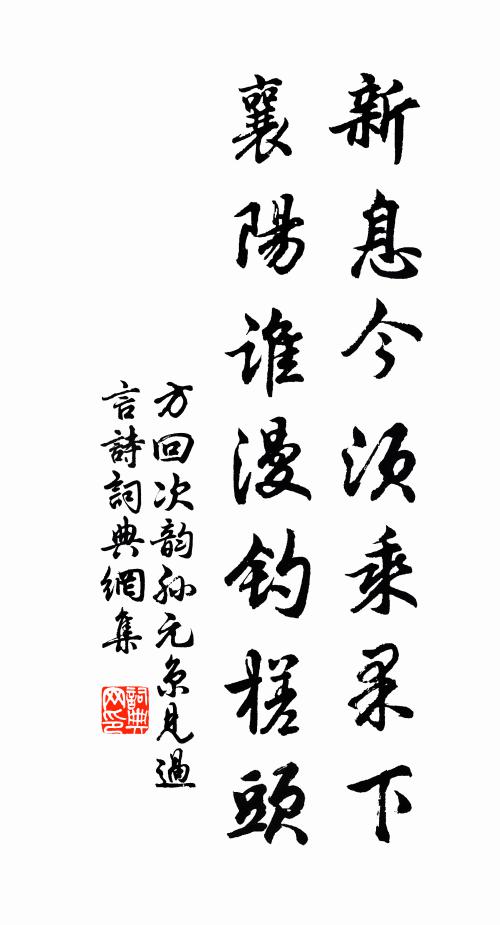 新息今須乘果下
襄陽誰漫釣槎頭
方回次韵孫元京見過
言詩詞典網集
詞典
网印